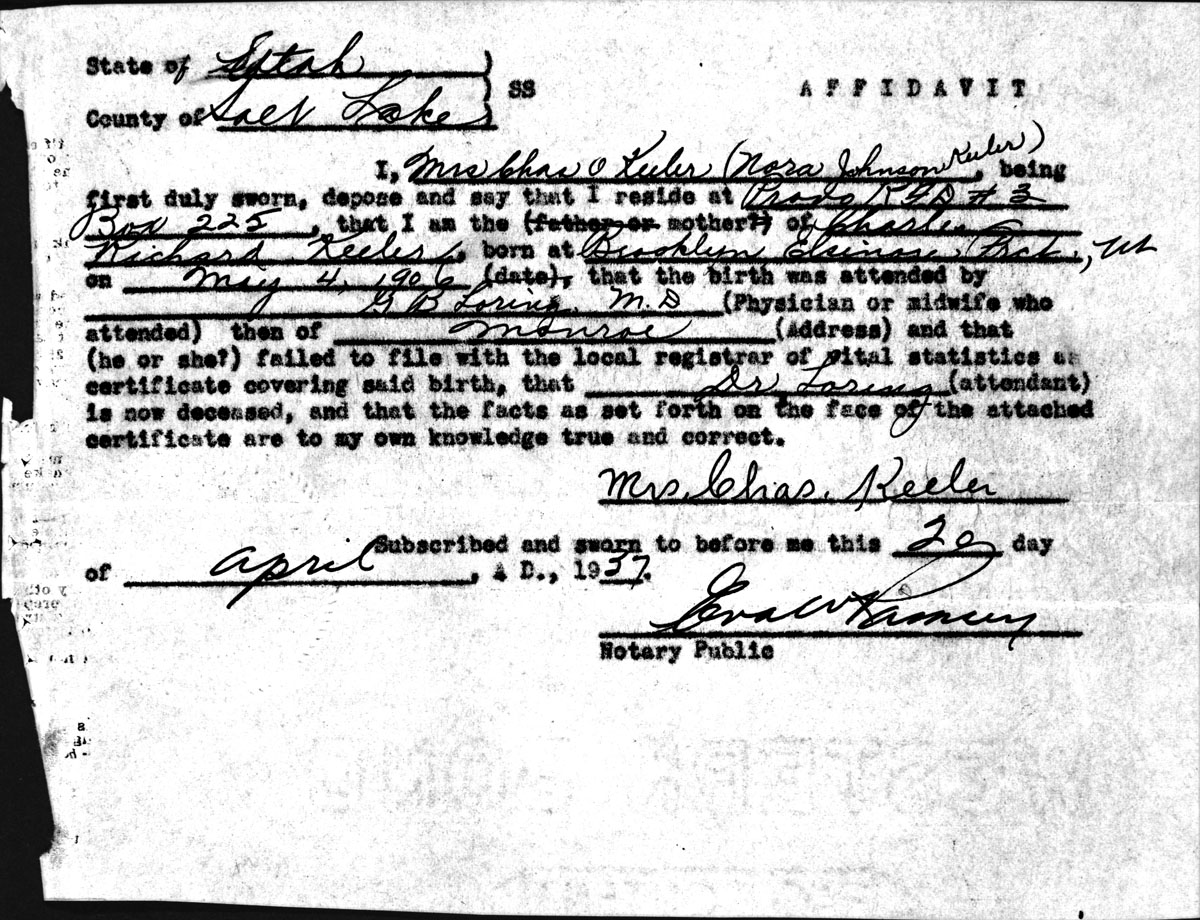 State of Utah
SS
AFFIDAVIT
County of Salt Lake
I, Mrs Chas O Keeler (Nora Johnson Keeler), being
first duly sworn, depose and say that I reside at Provo R F D # 3
Box 225, that I am the (father or mother?) of Charles
Richard Keeler, born at Brooklyn Elsinore Prct., Ut
on May 4, 1906 (date), that the birth was attended by
G B Loring, M.D (Physician or midwife who
attended) then of Monroe (Address) and that
(he or she?) failed to file with the local registrar of vital statistics as
certificate covering said birth, that Dr Loring (attendant)
is now deceased, and that the facts as set forth on the face of the attached
certificate are to my own knowledge true and correct.
Mrs. Chas. Keeler
Subscribed and sworn to before me this 20 day
of April, A D., 1937.
Eva W Ramsey
Notary Public